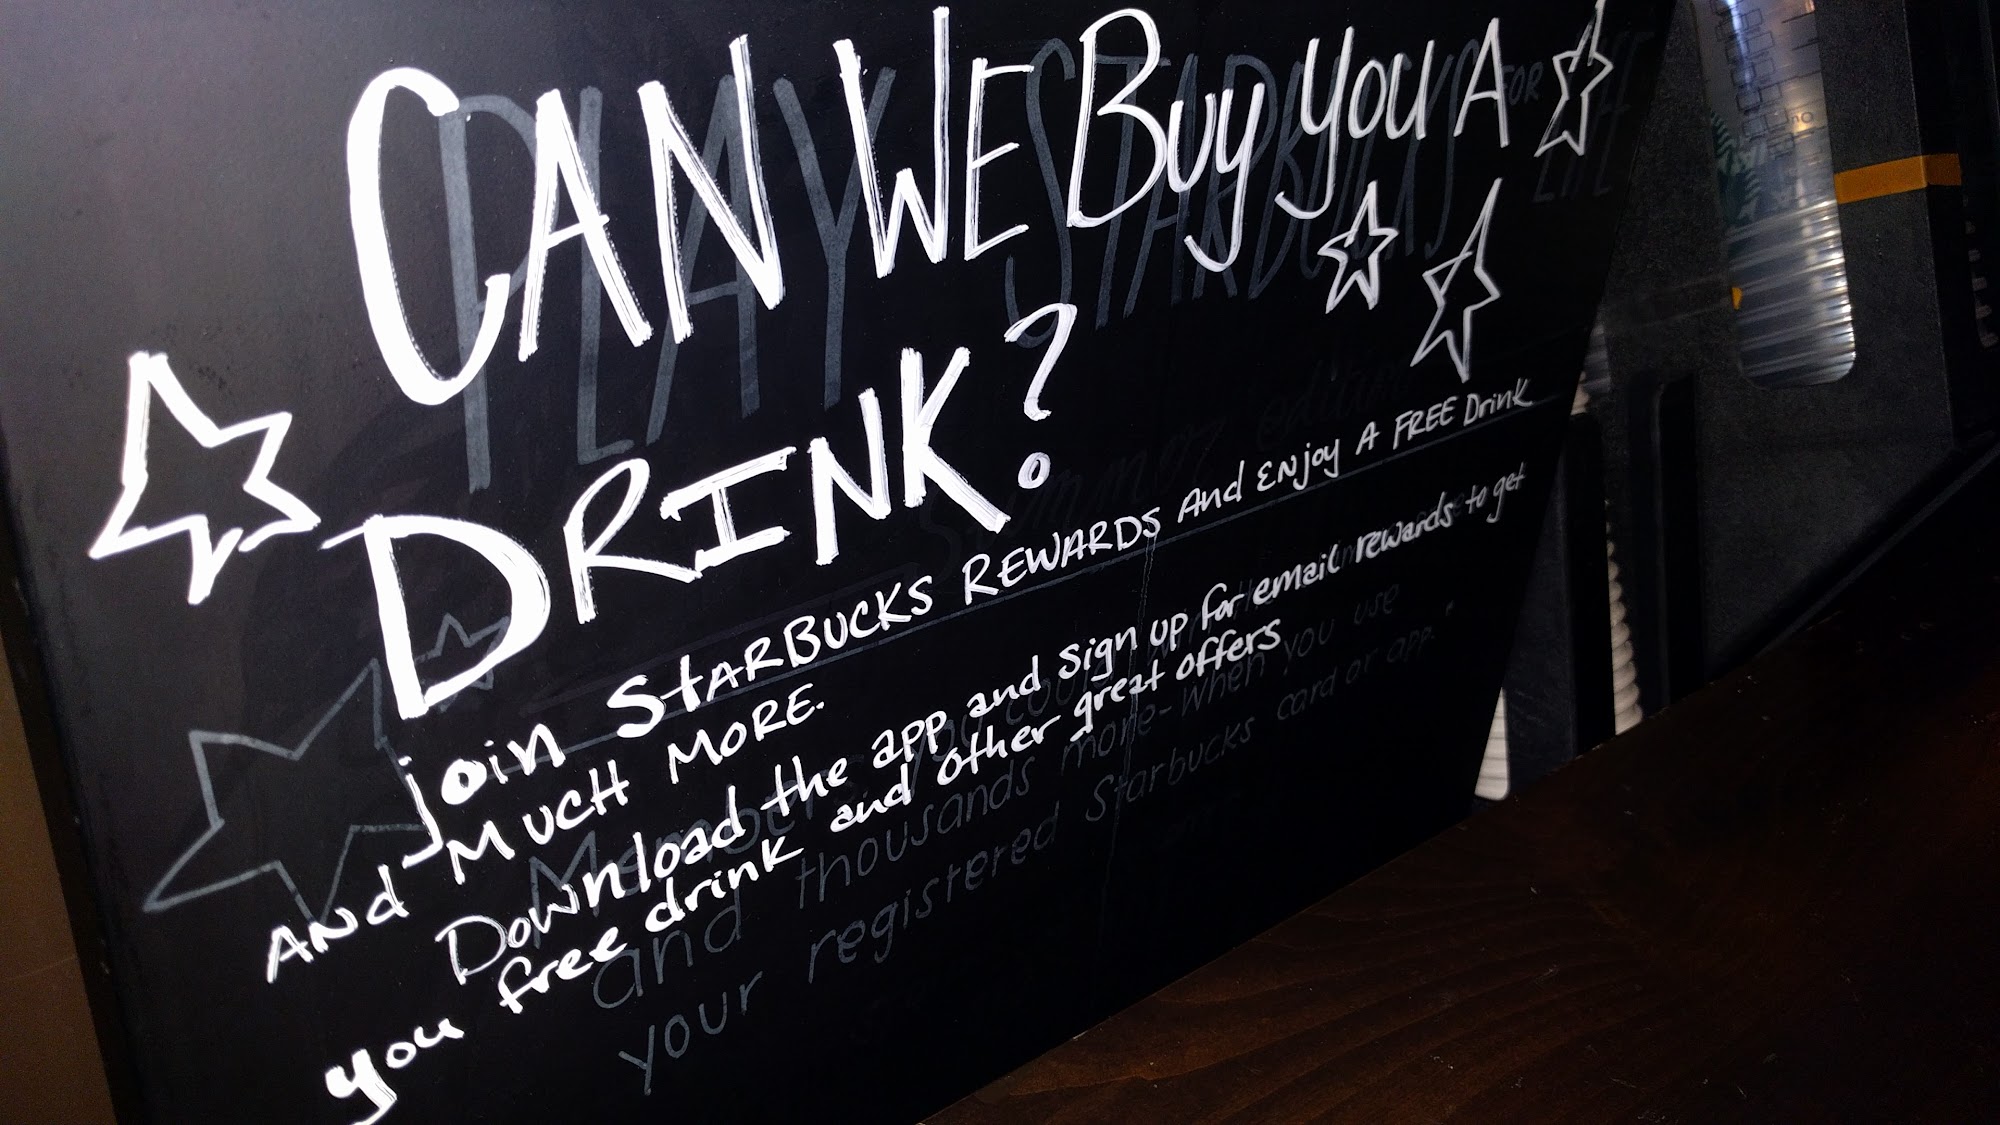 CAN WE Buy you A
DRINK?
join StARBUCKS REWARDS And ENjoy A FREE Drink
ANd MUCH MORE.
Download the app and sign up for email rewards to get
you free drink and other great offers
PLAY STARBUCKS FOR LIFE
Summer edition
Members, you could
and thousands more-when you use
your registered Starbucks card or app."